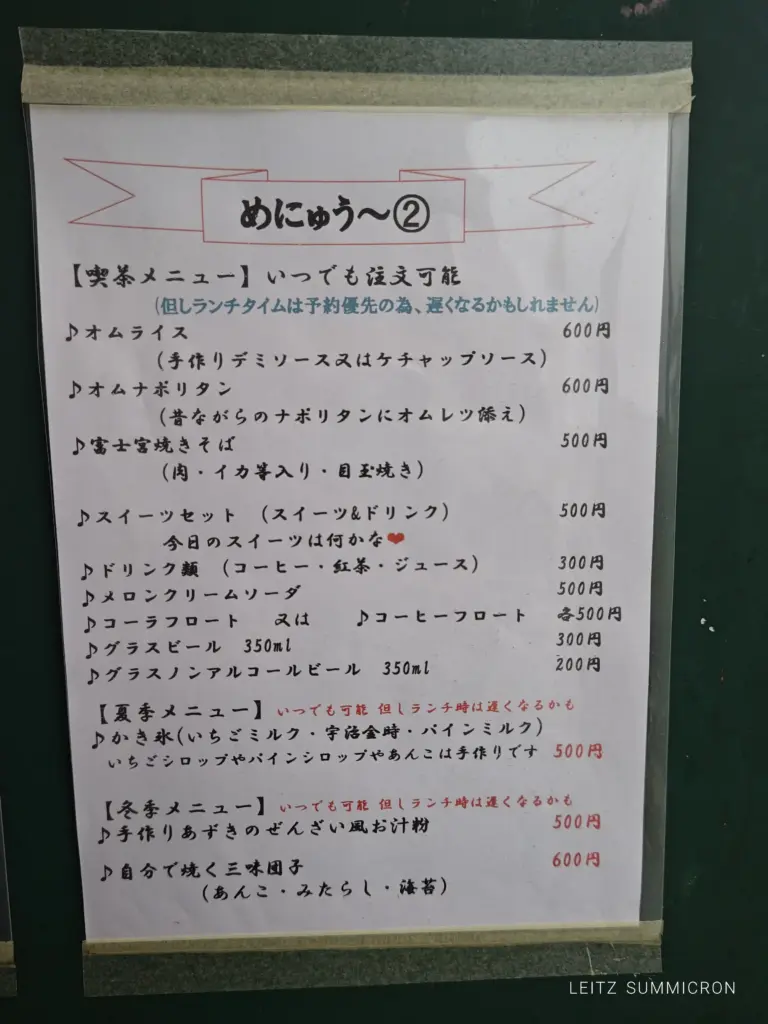 めにゅう～②
【喫茶メニュー】いつでも注文可能
(但しランチタイムは予約優先の為、遅くなるかもしれません)
♪オムライス 600円
(手作りデミソース又はケチャップソース)
♪オムナポリタン 600円
(昔ながらのナポリタンにオムレツ添え)
♪富士宮焼きそば 500円
(肉・イカ等入り・目玉焼き)
♪スイーツセット (スイーツ&ドリンク) 500円
今日のスイーツは何かな❤
♪ドリンク類 (コーヒー・紅茶・ジュース) 300円
♪メロンクリームソーダ 500円
♪コーラフロート 又は ♪コーヒーフロート 各500円
♪グラスビール 350ml 300円
♪グラスノンアルコールビール 350ml 200円
【夏季メニュー】いつでも可能 但しランチ時は遅くなるかも
♪かき氷(いちごミルク・宇治金時・パインミルク)
いちごシロップやパインシロップやあんこは手作りです 500円
【冬季メニュー】いつでも可能 但しランチ時は遅くなるかも
♪手作りあずきのぜんざい風お汁粉 500円
♪自分で焼く三味団子 600円
(あんこ・みたらし・海苔)
LEITZ SUMMICRON